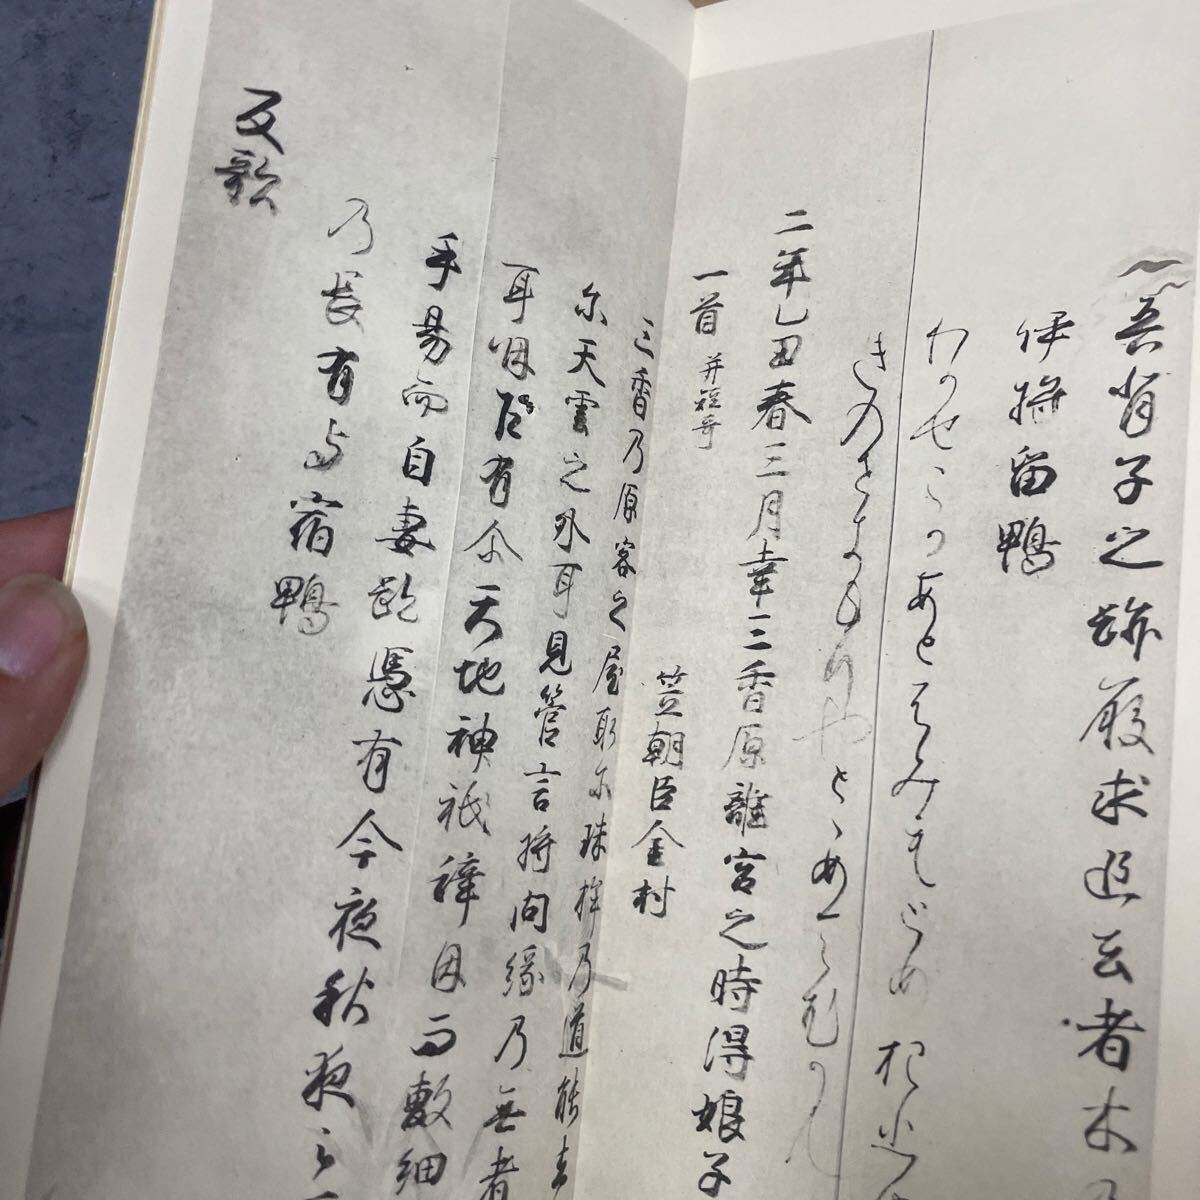 吾背子之跡履求追去者木乃
伊将留鴨
わかせこかあとふみもとめおひゆ
きのせきもりやとゝめてむかも
二年乙丑春三月幸三香原離宮之時得娘子
一首 并短哥
笠朝臣金村
三香乃原客之屋取尓珠桙乃道能去
尓天雲之外耳見管言将問縁乃無者
耳因有尓天地神祇辞因而敷細
手易而自妻跡憑有今夜秋夜之
乃長有与宿鴨
反歌